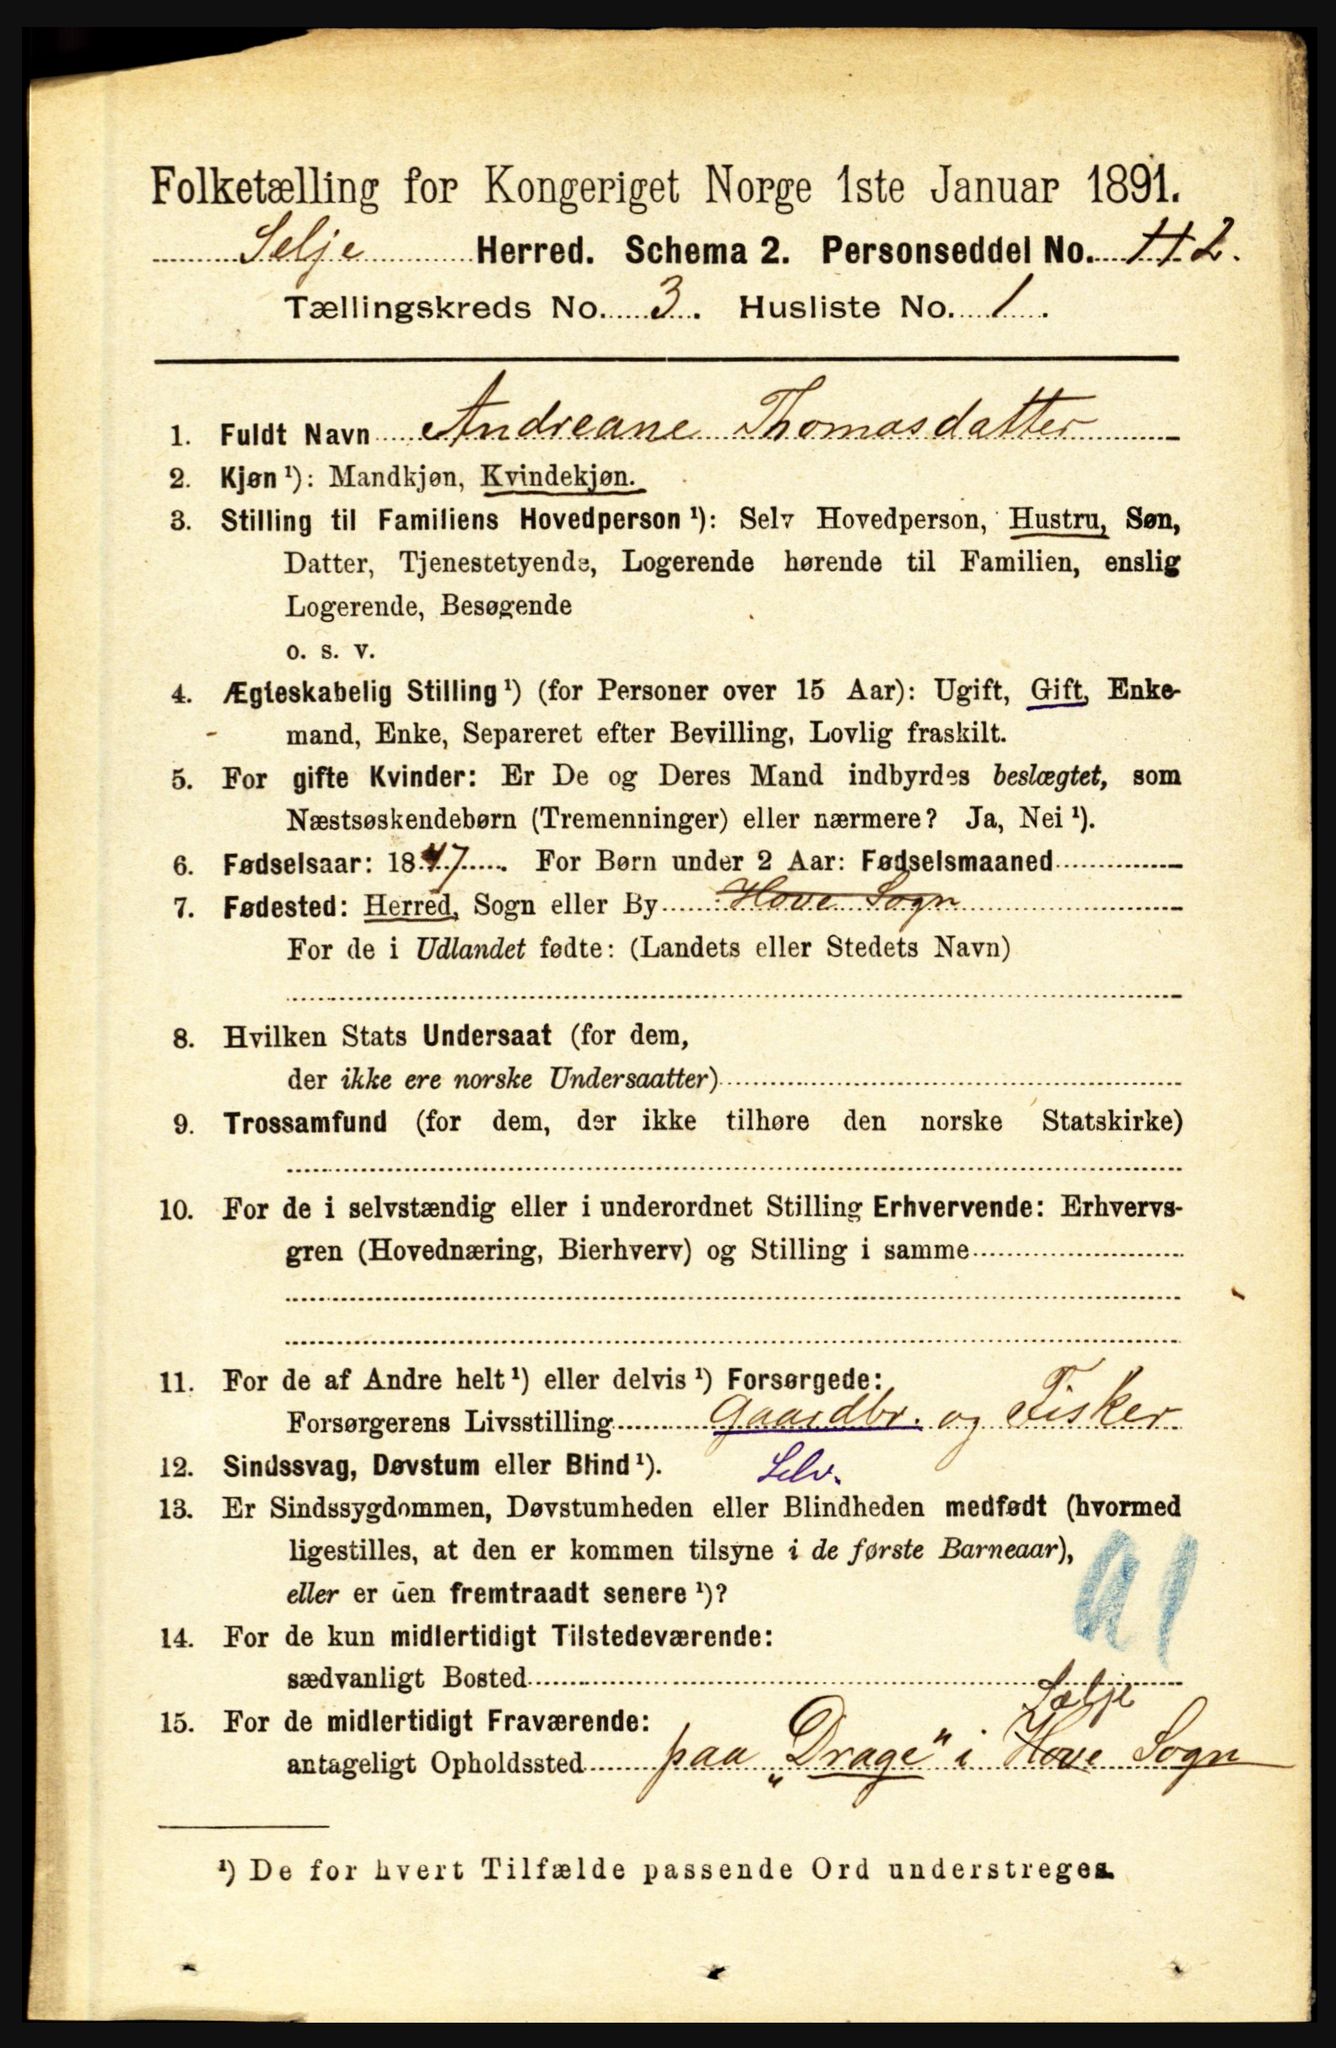 Folketælling for Kongeriget Norge 1ste Januar 1891.
Selje Herred. Schema 2. Personseddel No. 2.
Tællingskreds No. 3. Husliste No. 1.
1. Fuldt Navn Andreane Thomasdatter
2. Kjøn ¹): Mandkjøn, Kvindekjøn.
3. Stilling til Familiens Hovedperson ¹): Selv Hovedperson, Hustru, Søn,
Datter, Tjenestetyende, Logerende hørende til Familien, enslig
Logerende, Besøgende
o. s. v.
4. Ægteskabelig Stilling ¹) (for Personer over 15 Aar): Ugift, Gift, Enke-
mand, Enke, Separeret efter Bevilling, Lovlig fraskilt.
5. For gifte Kvinder: Er De og Deres Mand indbyrdes beslægtet, som
Næstsøskendebørn (Tremenninger) eller nærmere? Ja, Nei ¹).
6. Fødselsaar: 1847. For Børn under 2 Aar: Fødselsmaaned
7. Fødested: Herred, Sogn eller By Hove Sogn
For de i Udlandet fødte: (Landets eller Stedets Navn)
8. Hvilken Stats Undersaat (for dem,
der ikke ere norske Undersaatter)
9. Trossamfund (for dem, der ikke tilhøre den norske Statskirke)
10. For de i selvstændig eller i underordnet Stilling Erhvervende: Erhvervs-
gren (Hovednæring, Bierhverv) og Stilling i samme
11. For de af Andre helt ¹) eller delvis ¹) Forsørgede:
Forsørgerens Livsstilling Gaardbr. og Fisker
12. Sindssvag, Døvstum eller Blind ¹). Selv.
13. Er Sindssygdommen, Døvstumheden eller Blindheden medfødt (hvormed
ligestilles, at den er kommen tilsyne i de første Barneaar),
eller er den fremtraadt senere ¹)?
14. For de kun midlertidigt Tilstedeværende:
sædvanligt Bosted
15. For de midlertidigt Fraværende: Selje
antageligt Opholdssted paa „Drage" i Hove Sogn
¹) De for hvert Tilfælde passende Ord understreges.